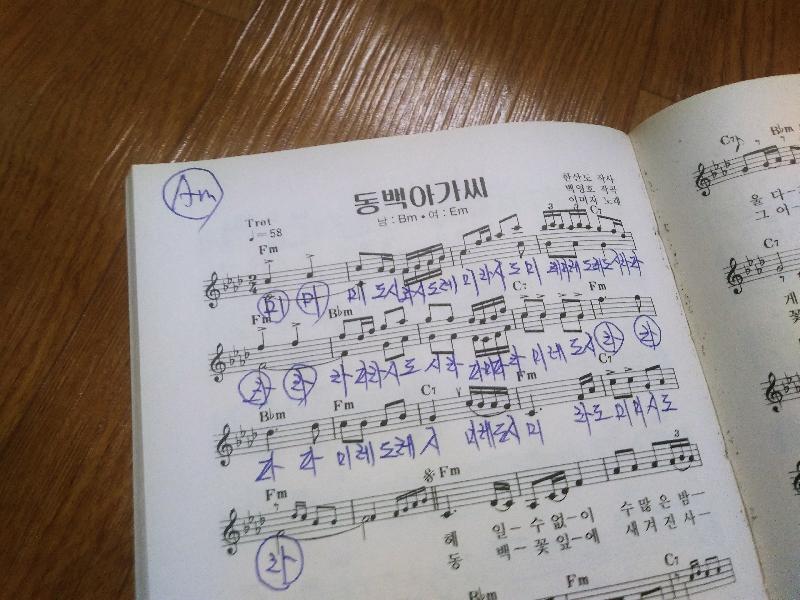 Am
동백아가씨
한산도 작사
백영호 작곡
이미자 노래
남 : Bm • 여 : Em
Trot
♩= 58
Fm C7
미 미 미 도시라시도레 미라시도미
Fm B♭m C7 Fm
라 라 라 라라시도 시라 미레도시 라 라
B♭m Fm C7 Fm C7
라 라 미레도레시 미레도시미 라도미미시도
Fm Fm
3
라
헤 일- 수없-이 수많은밤-
동 백-꽃잎-에 새겨진사-
B♭m Fm C7
C7 B♭m
울 다-
그 이-
C7
게
꽃